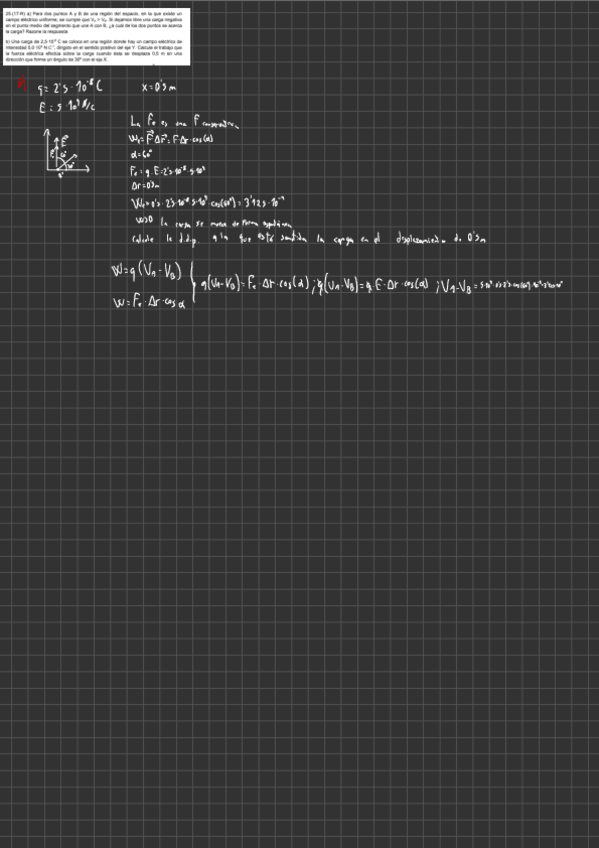 26.(17-R) a) Para dos puntos A y B de una región del espacio, en la que existe un
campo eléctrico uniforme, se cumple que V_A > V_B. Si dejamos libre una carga negativa
en el punto medio del segmento que une A con B, ¿a cuál de los dos puntos se acerca
la carga? Razone la respuesta.
b) Una carga de 2,5·10⁻⁸ C se coloca en una región donde hay un campo eléctrico de
intensidad 5,0·10⁴ N C⁻¹, dirigido en el sentido positivo del eje Y. Calcule el trabajo que
la fuerza eléctrica efectúa sobre la carga cuando ésta se desplaza 0,5 m en una
dirección que forma un ángulo de 30º con el eje X.
q = 2's · 10⁻⁸ C x = 0's m
E = 5 · 10⁴ N/C
La Fe es una F conservativa
We = F⃗ Δr⃗ = F Δr · cos(α)
α = 60°
Fe = q · E = 2's · 10⁻⁸ · 5 · 10⁴
Δr = 0's m
We = 0's · 2's · 10⁻⁸ · 5 · 10⁴ · cos(60°) = 3'125 · 10⁻⁴
W>0 la carga se mueve de forma espontánea
calcule la d.d.p. a la que está sometida la carga en el desplazamiento de 0's m
W = q (V_A - V_B)
q(V_A - V_B) = Fe · Δr · cos(α) ; q(V_A - V_B) = q · E · Δr · cos(α) ; V_A - V_B =
W = Fe · Δr · cos α